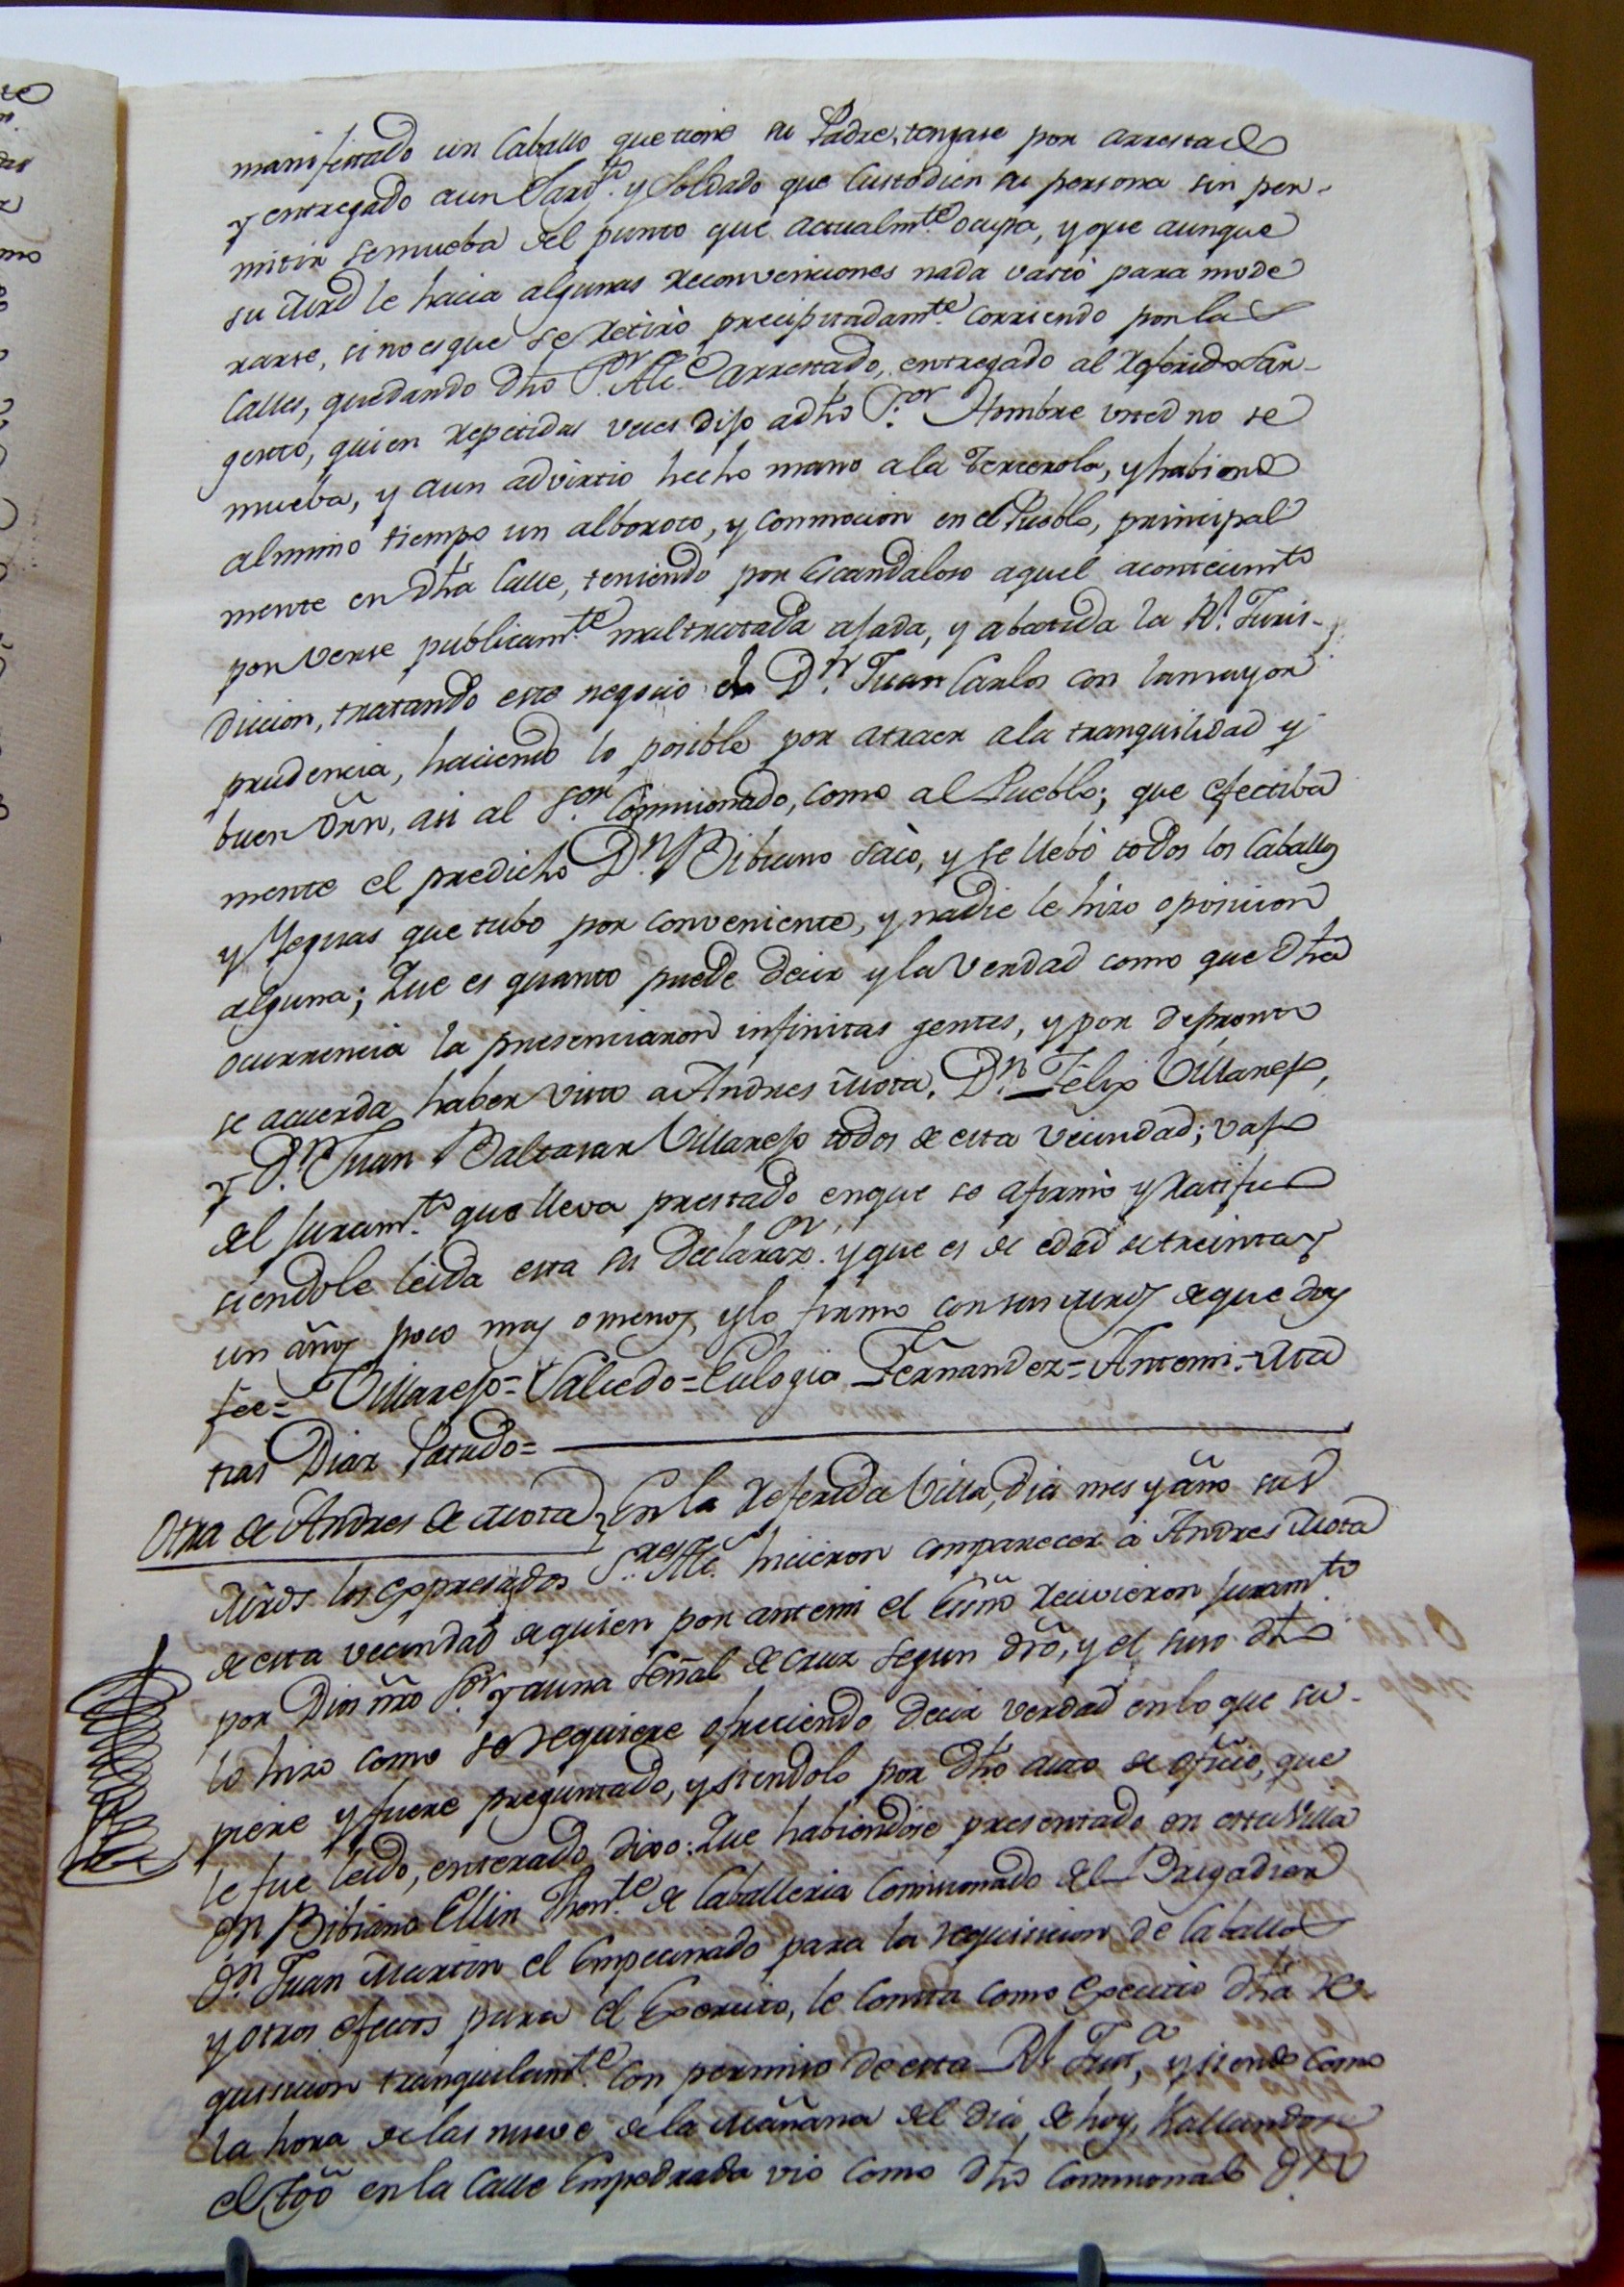 manifestado un Caballo que tiene su Padre, tengase por arrestado
y entregado a un Sarg.to y Soldado que Custodien su persona sin per-
mitir se mueba del punto que actualm.te ocupa, y que aunque
su mrd le hacia algunas reconvenciones nada vastó para mode
rarse, sino es que se retiró precipitadam.te corriendo por las
Calles, quedando dho S.or Alc.e arrestado, entregado al referido Sar-
gento, quien repetidas veces dijo a dho S.or Hombre usted no se
mueba, y aun advirtio hecho mano a la Tercerola, y habiendo
al mismo tiempo un alboroto, y conmocion en el Pueblo, principal
mente en dha Calle, teniendo por escandaloso aquel acontecim.to
por verse publicam.te maltratada ajada, y abatida la R.l Juris-
diccion, tratando este negocio el D.n Juan Carlos con la mayor
prudencia, haciendo lo posible por atraer a la tranquilidad y
buen orn, asi al S.or Comisionado, como al Pueblo; que efectiba
mente el predicho D.n Bibiano sacó, y se llebó todos los Caballos
y Yeguas que tubo por conveniente, y nadie le hizo oposicion
alguna; Que es quanto puede decir y la verdad como que dha
ocurrencia la presenciaron infinitas gentes, y por de pronto
se acuerda haber visto a Andres Mota, D.n Felix Villarejo,
y D.n Juan Baltasar Villarejo todos de esta vecindad; vajo
del juram.to que lleva prestado en que se afirmó y ratificó
siendole leida esta su Declaraz.on y que es de edad de treinta y
un años poco mas o menos, y lo firmó con sus mrds de que doy
fee= Villarejo= Salcedo= Eulogio Fernandez= Antemi= Ata
tras Diaz Patudo=
Otra de Andres de Mota } En la referida Villa, dia mes y año sus
Mrds los expresados S.res Alc.es hicieron comparecer á Andres Mota
de esta vecindad de quien por antemi el Essno recivieron juram.to
por Dios nro S.or y a una Señal de Cruz segun dro, y el suso dho
lo hizo como se requiere ofreciendo decir verdad en lo que su-
piere y fuere preguntado, y siendolo por dho auto de oficio, que
le fue leido, enterado, dixo: Que habiendose presentado en esta Villa
D.n Bibiano Ellin Then.te de Caballeria Comisionado del Brigadier
D.n Juan Martin el Empecinado para la requisicion de Caballos
y otros efectos para el Exercito, le consta como executó dha re-
quisicion tranquilam.te con permiso de esta R.l Jur.a, y siendo como
la hora de las nueve de la Mañana del dia de hoy, hallandose
el tgo en la Calle Empedrada vio como dho Comisionado D.n